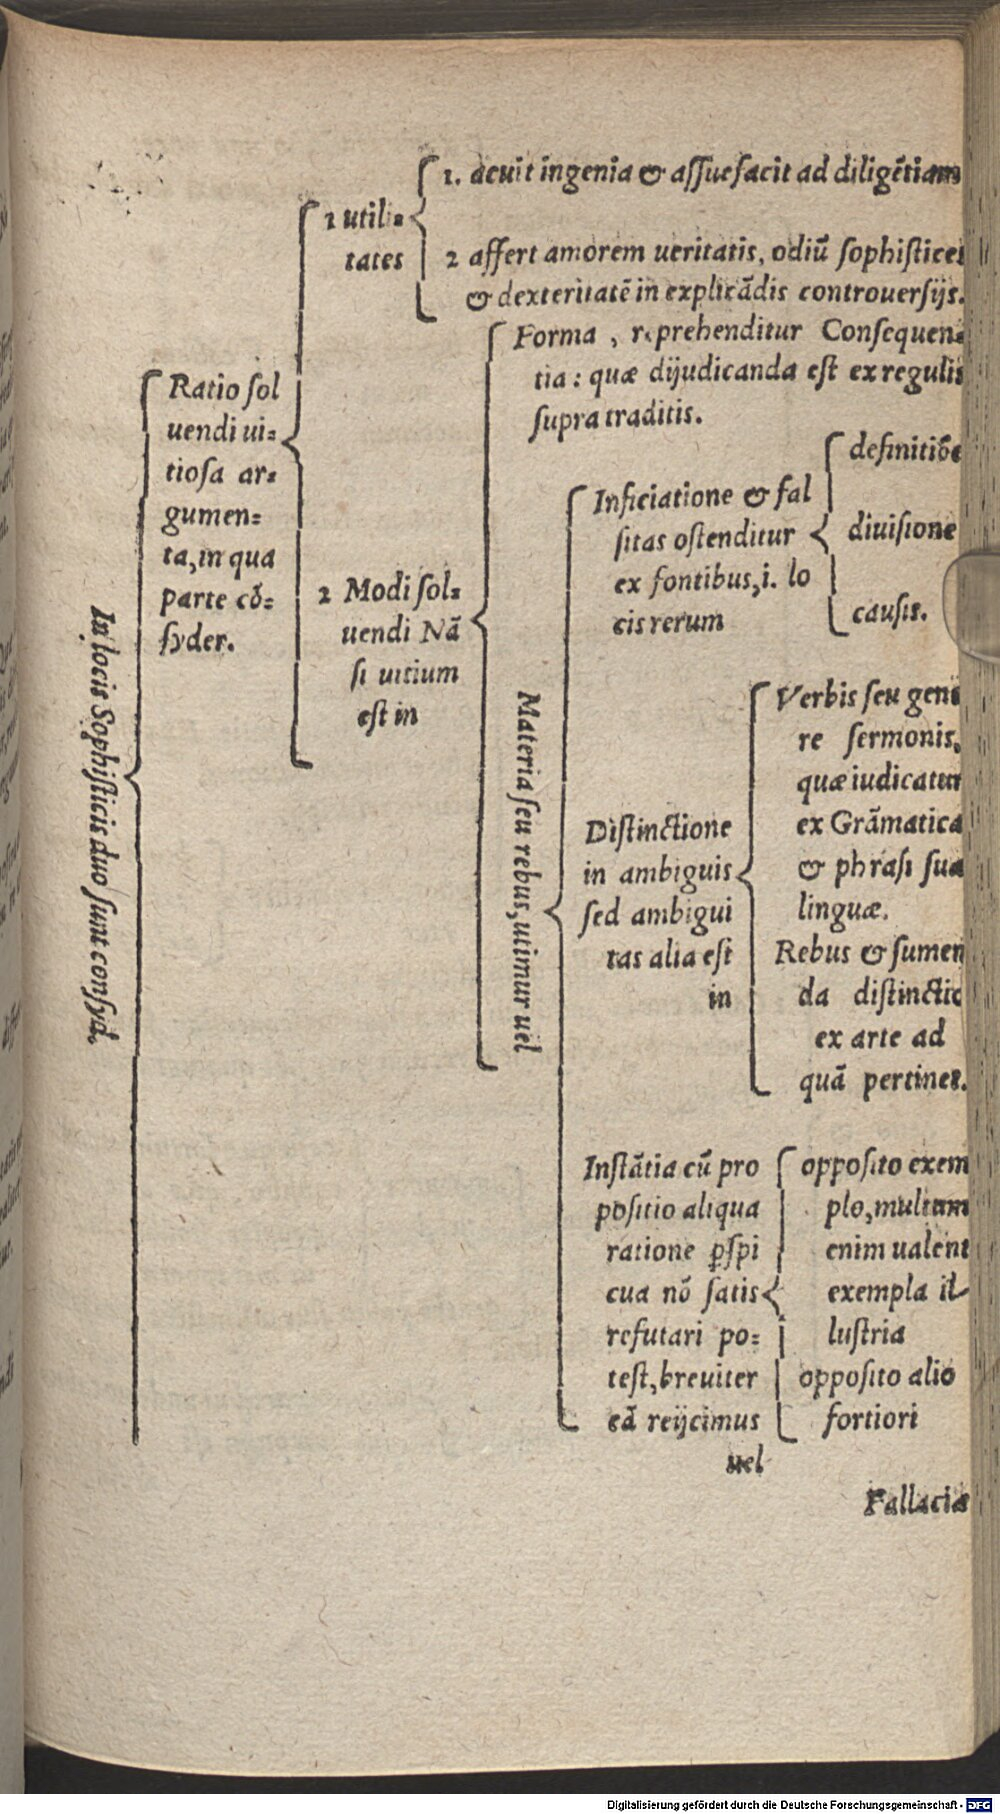 In locis Sophisticis duo sunt consyd.
Ratio sol
uendi ui=
tiosa ar=
gumen=
ta, in qua
parte cō=
syder.
1 utili=
tates
1. acuit ingenia & assuefacit ad diligētiam
2 affert amorem ueritatis, odiū sophistices
& dexteritatē in explicādis controuersijs.
2 Modi sol=
uendi Nā
si uitium
est in
Forma, reprehenditur Consequen=
tia: quæ dijudicanda est ex regulis
supra traditis.
Materia seu rebus, utimur uel
Inficiatione & fal
sitas ostenditur
ex fontibus, i. lo
cis rerum
definitiōe
diuisione
causis.
Distinctione
in ambiguis
sed ambigui
tas alia est
in
Verbis seu gene
re sermonis,
quæ iudicatur
ex Grāmatica
& phrasi suæ
linguæ.
Rebus & sumen
da distinctio
ex arte ad
quā pertinet.
Instātia cū pro
positio aliqua
ratione ꝑspi
cua nō satis
refutari po=
test, breuiter
eā reijcimus
uel
opposito exem
plo, multum
enim ualent
exempla il
lustria
opposito alio
fortiori
Fallaciæ
Digitalisierung gefördert durch die Deutsche Forschungsgemeinschaft - DFG